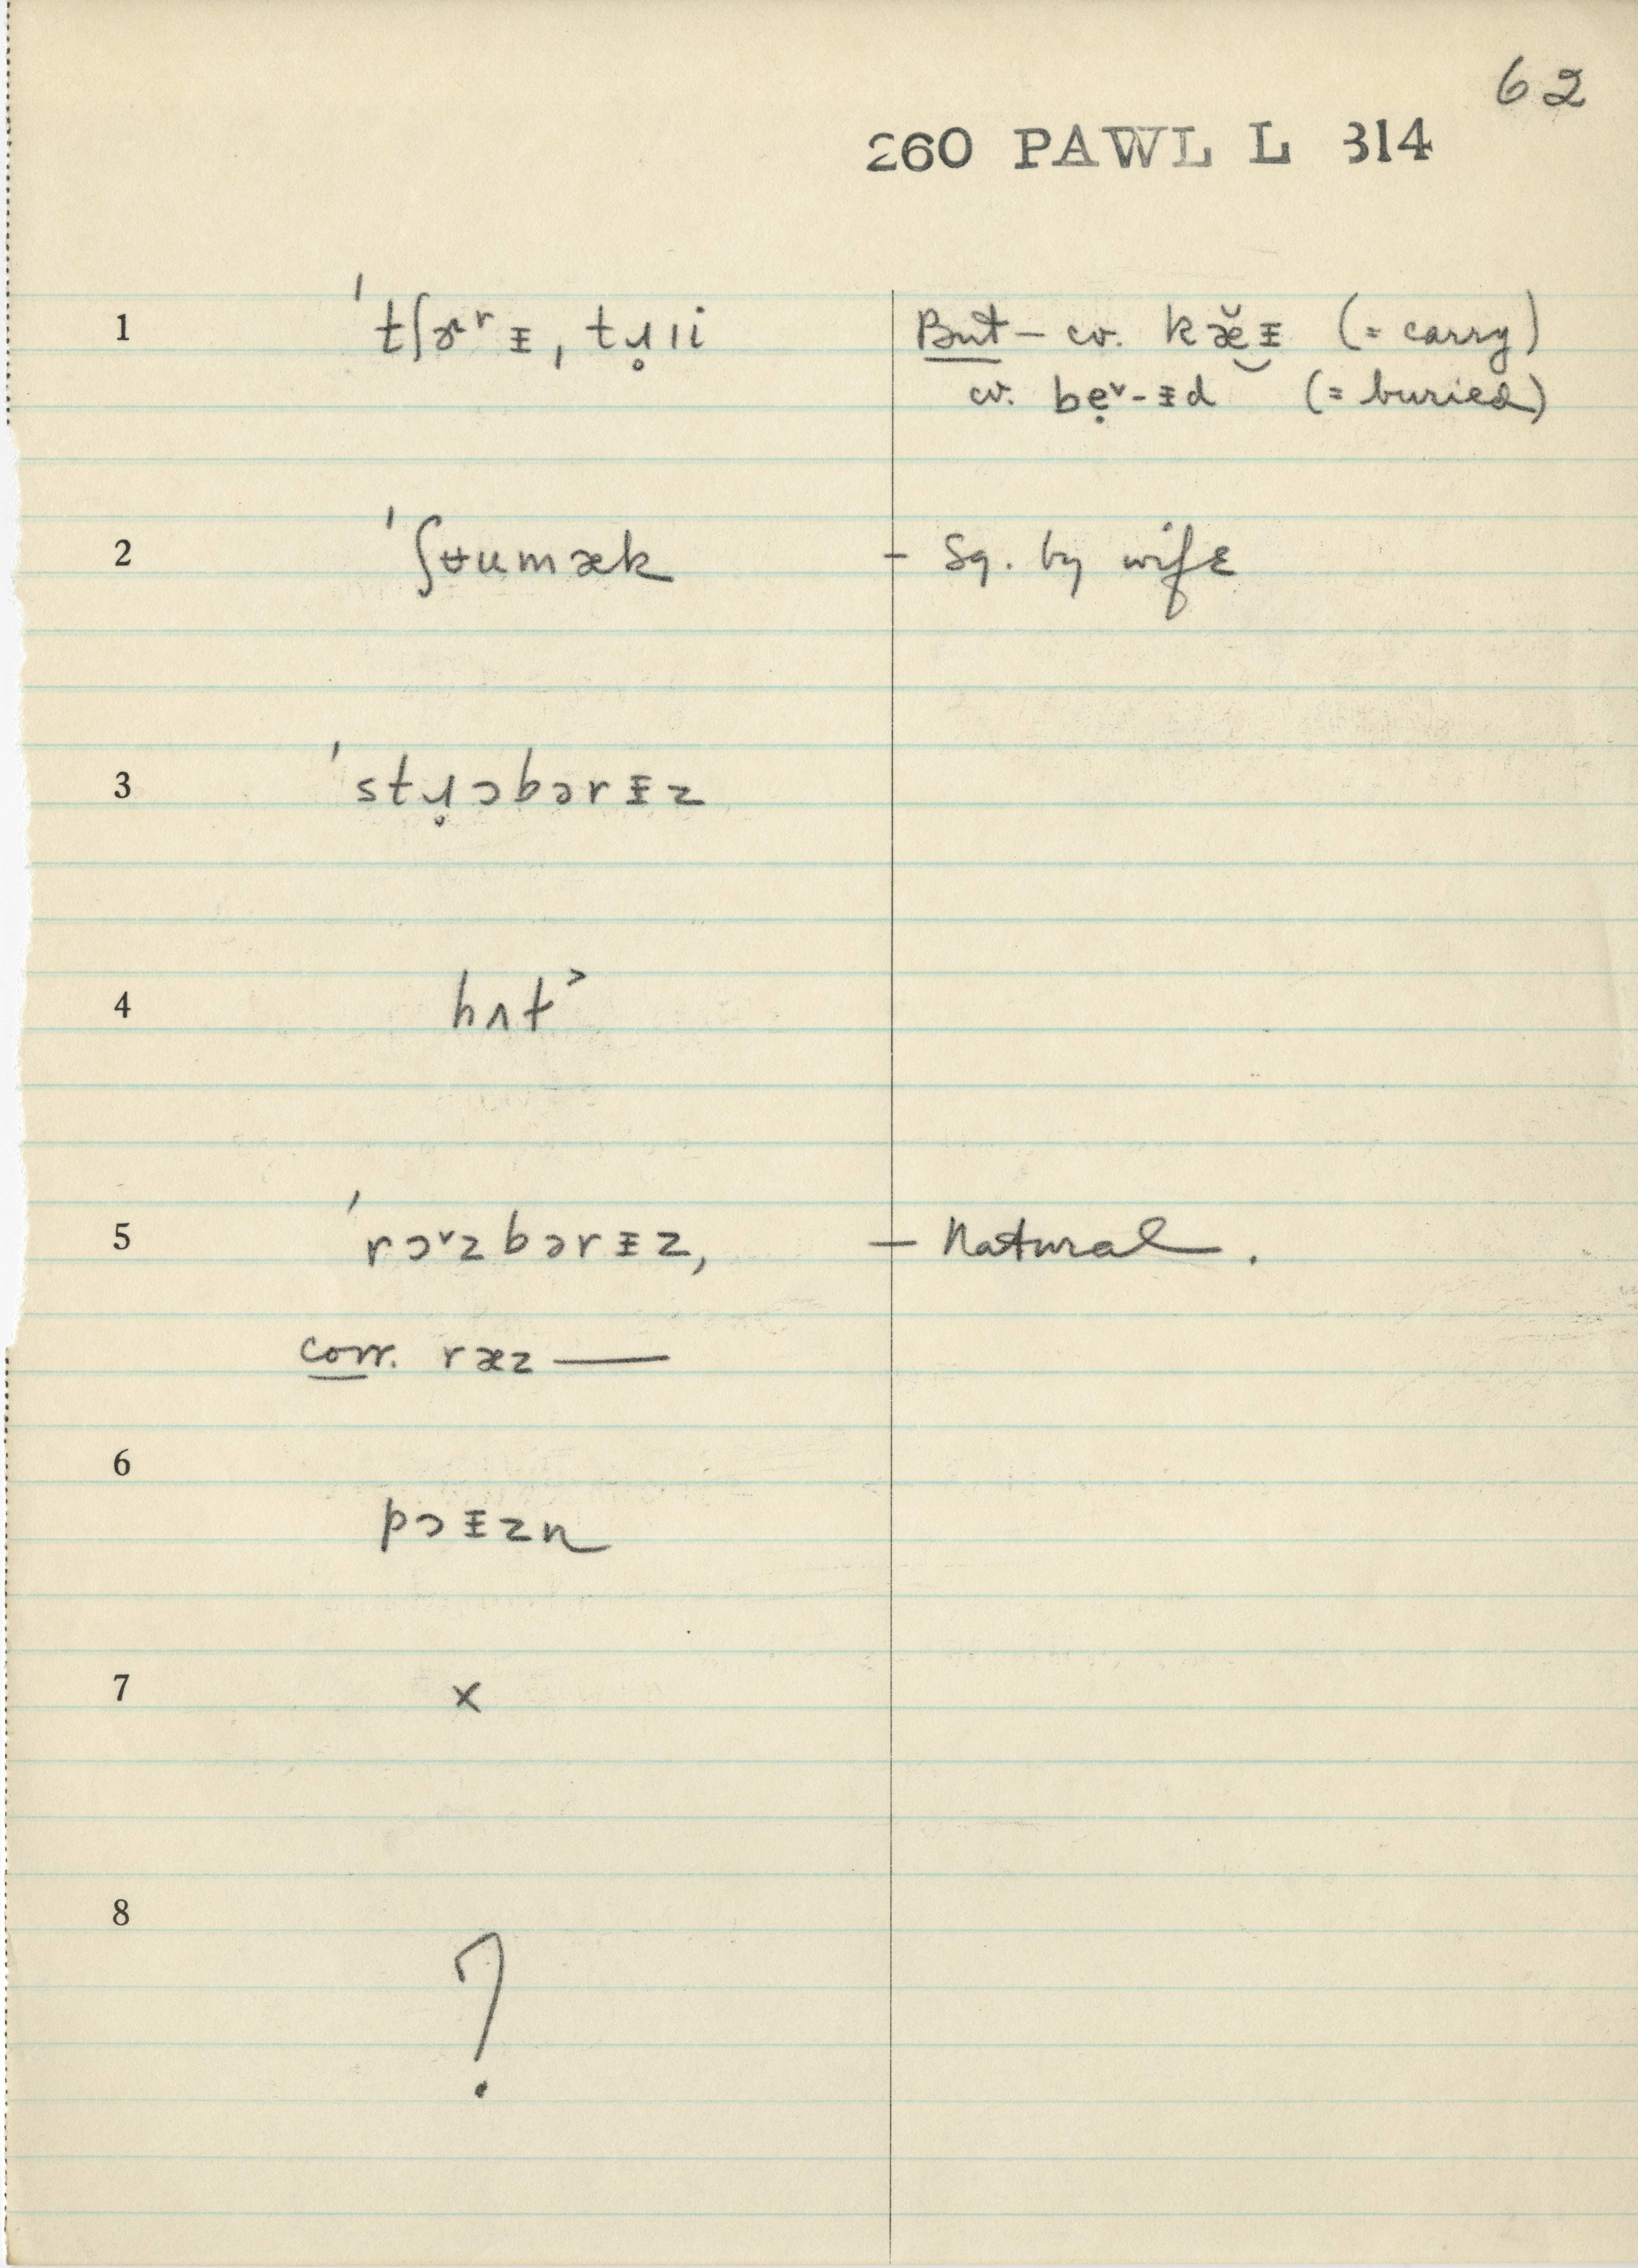 62
260 PAWL L 314
1 ˈtʃɚʳᵻ, tɹ̥ɪi But – cv. kæ̆ᵻ (= carry)
cv. bẹ˅-ᵻd (= buried)
2 ˈʃʉumæk – Sq. by wife
3 ˈstɹ̥ɔbərᵻz
4 hʌt˃
5 ˈrɔ˅zbərᵻz, – Natural.
corr. ræz ——
6
pɔᵻzn
7 ×
8
?